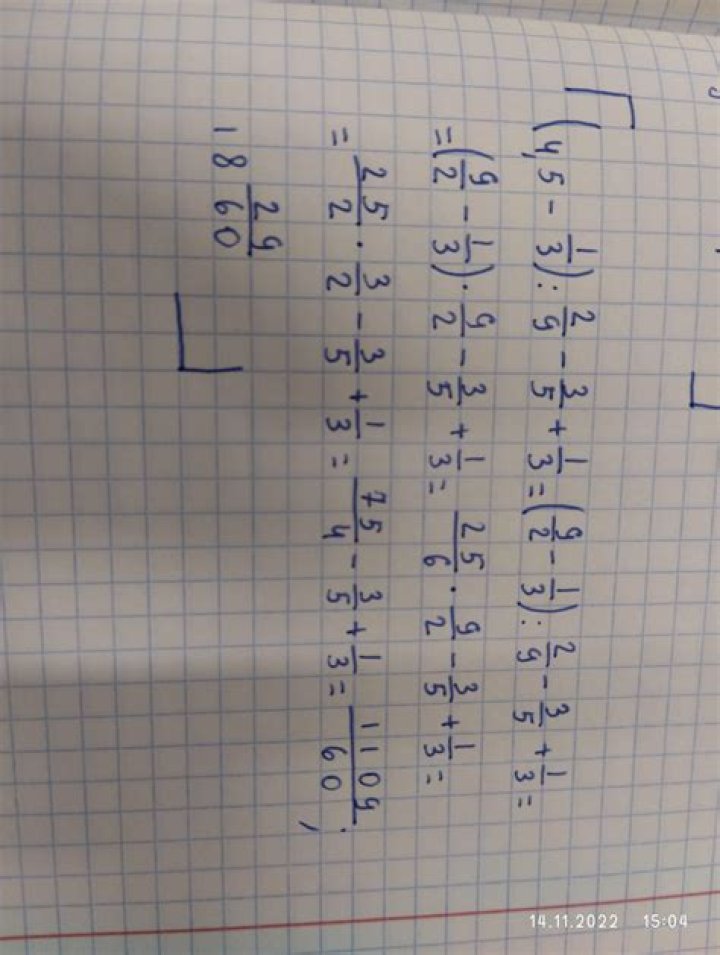 (4,5 - 1/3) : 2/9 - 3/5 + 1/3 = (9/2 - 1/3) : 2/9 - 3/5 + 1/3 =
= (9/2 - 1/3) · 9/2 - 3/5 + 1/3 = 25/6 · 9/2 - 3/5 + 1/3 =
= 25/2 · 3/2 - 3/5 + 1/3 = 75/4 - 3/5 + 1/3 = 1109/60 ;
18 29/60
14.11.2022 15:04